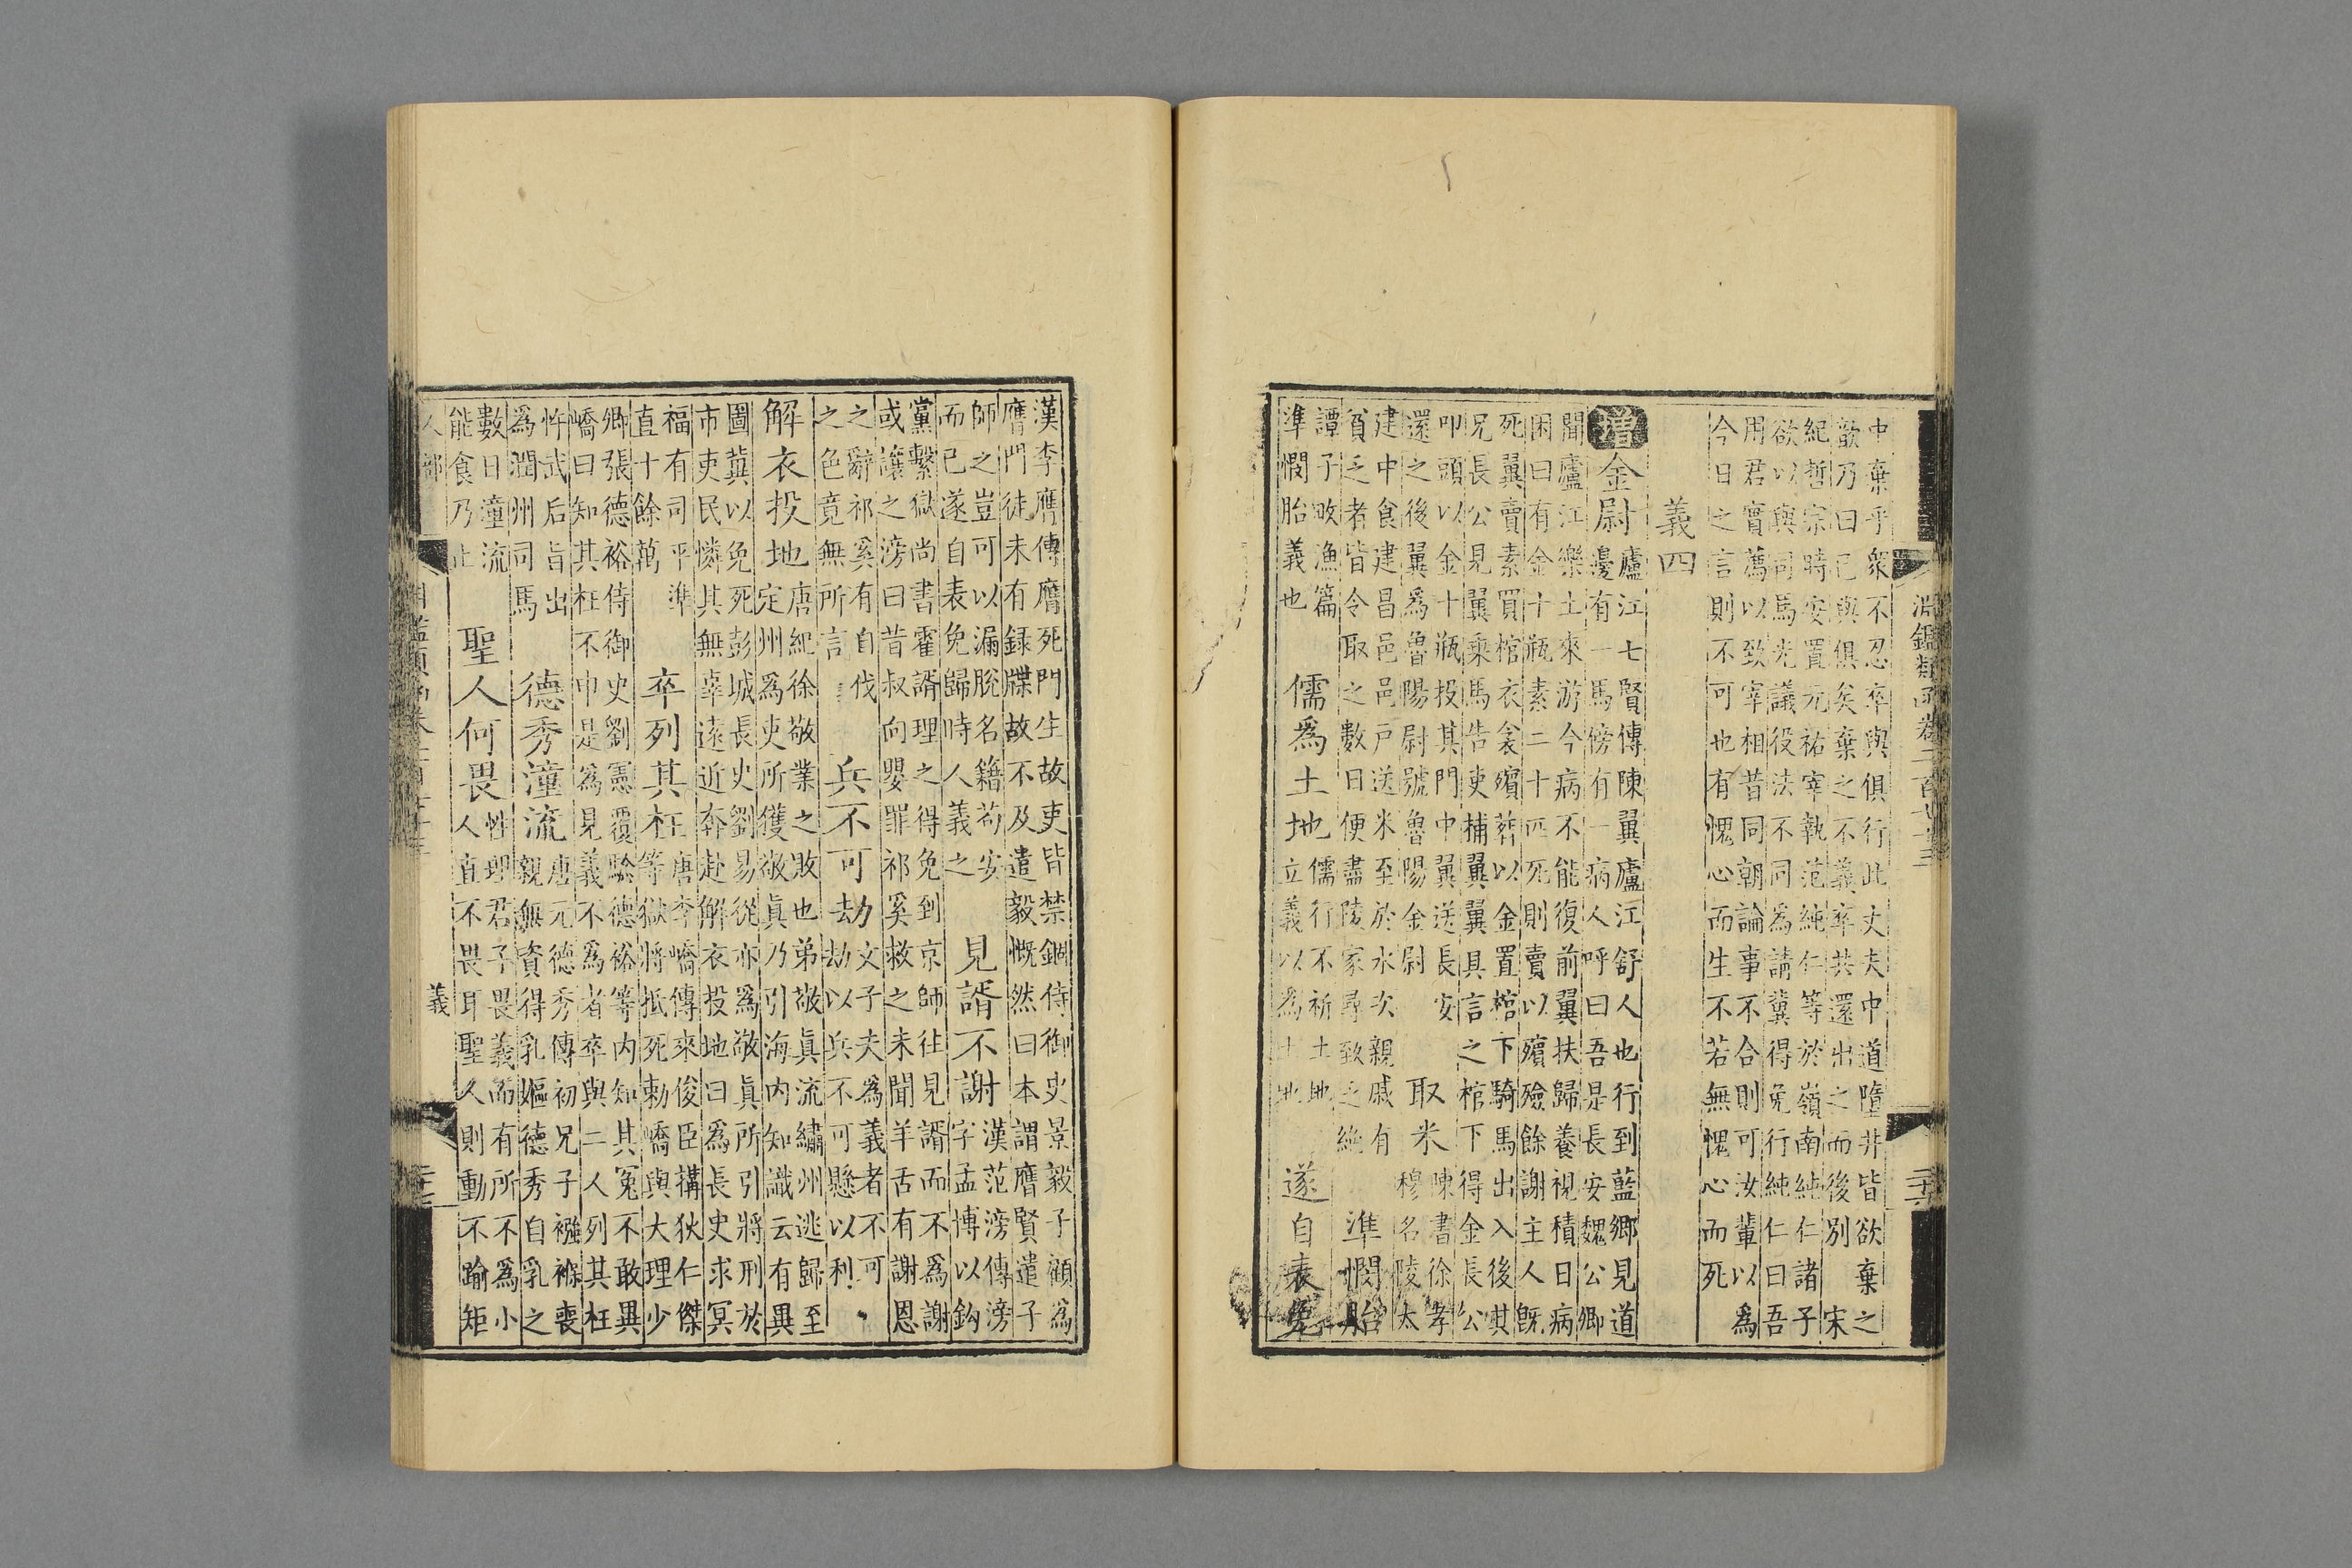 淵鑑類函卷二百七十三
二十六
中棄乎衆不忍卒與俱行此丈夫中道墮井皆欲棄之
歆乃曰已與俱矣棄之不義卒共還出之而後別 宋
紀哲宗時安置元祐宰執范純仁等於嶺南純仁諸子
欲以與司馬光議役法不同爲請冀得免行純仁曰吾
用君實薦以致宰相昔同朝論事不合則可汝輩以爲
今日之言則不可也有愧心而生不若無愧心而死
義四
增 金尉
廬江七賢傳陳翼廬江舒人也行到藍鄉見道
邊有一馬傍有一病人呼曰吾是長安魏公卿
聞廬江樂土來游今病不能復前翼扶歸養視積日病
困曰有金十瓶素二十匹死則賣以殯殮餘謝主人既
死翼賣素買棺衣衾殯葬以金置棺下騎馬出入後其
兄長公見翼乘馬告吏捕翼翼具言之棺下得金長公
叩頭以金十瓶投其門中翼送長安
還之後翼爲魯陽尉號魯陽金尉
取米
陳書徐孝
穆名陵太
建中食建昌邑邑戶送米至於水次親戚有
貧乏者皆令取之數日便盡陵家尋致乏絕
準憫胎
譚子畋漁篇
準憫胎義也
儒爲土地
儒行不祈土地
立義以爲土地
遂自表免
漢李膺傳膺死門生故吏皆禁錮侍御史景毅子顧爲
膺門徒未有録牒故不及遣毅慨然曰本謂膺賢遣子
師之豈可以漏脫名籍苟安
而已遂自表免歸時人義之
見諝不謝
漢范滂傳滂
字孟博以鈎
黨繫獄尚書霍諝理之得免到京師往見諝而不爲謝
或讓之滂曰昔叔向嬰罪祁奚救之未聞羊舌有謝恩
之辭祁奚有自伐
之色竟無所言
兵不可劫
文子夫爲義者不可
劫以兵不可懸以利
解衣投地
唐紀徐敬業之敗也弟敬眞流繡州逃歸至
定州爲吏所獲敬眞乃引海内知識云有異
圖冀以免死彭城長史劉易從亦爲敬眞所引將刑於
市吏民憐其無辜遠近奔赴解衣投地曰爲長史求冥
福有司平準
直十餘萬
卒列其枉
唐李嶠傳來俊臣搆狄仁傑
等獄將抵死勅嶠與大理少
卿張德裕侍御史劉憲覆驗德裕等内知其冤不敢異
嶠曰知其枉不申是爲見義不爲者卒與二人列其枉
忤武后旨出
爲潤州司馬
德秀潼流
唐元德秀傳初兄子襁褓喪
親無資得乳媼德秀自乳之
數日潼流
能食乃止
聖人何畏
性理君子畏義而有所不爲小
人直不畏耳聖人則動不踰矩
人部
義
二十七